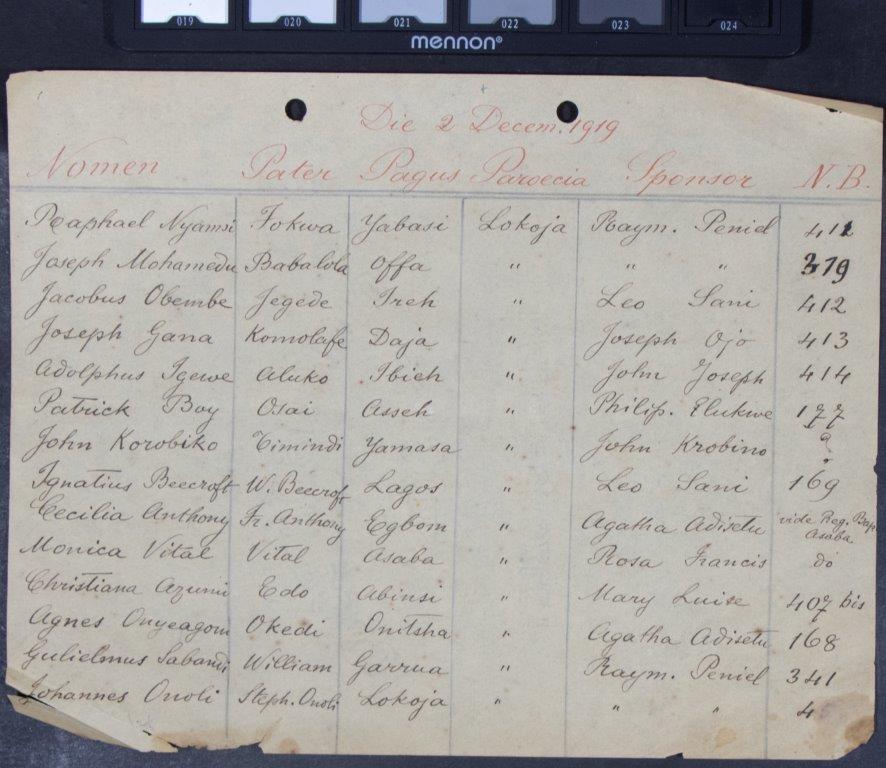 019 020 021 022 023 024
mennon
Die 2 Decem. 1919
Nomen Pater Pagus Paroecia Sponsor N.B.
Raphael Nyamsi Fokwa Yabasi Lokoja Raym. Peniel 411
Joseph Mohamedu Babalola Offa " " " 379
Jacobus Obembe Jegede Ireh " Leo Sani 412
Joseph Gana Komolafe Daja " Joseph Ojo 413
Adolphus Igewe Aluko Ibieh " John Joseph 414
Patrick Boy Osai Asseh " Philip. Elukwe 177
John Korobiko Timindi Yamasa " John Krobino ?
Ignatius Beecroft W. Beecroft Lagos " Leo Sani 169
Cecilia Anthony Fr. Anthony Egbom " Agatha Adisetu vide Reg. Bap. Asaba
Monica Vital Vital Asaba " Rosa Francis do
Christiana Azumi Edo Abinsi " Mary Luise 407 bis
Agnes Onyeagom Okedi Onitsha " Agatha Adisetu 168
Gulielmus Sabandi William Garrua " Raym. Peniel 341
Johannes Onoli Steph. Onoli Lokoja " " " 4